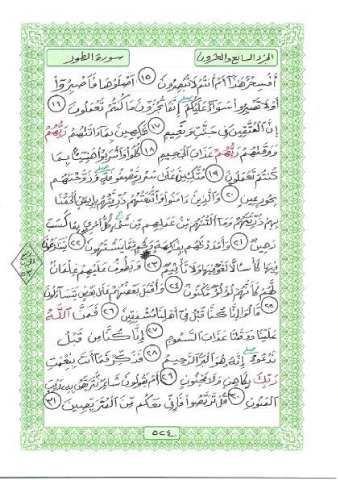 الجزء السابع والعشرون سورة الطور
أفسحر هذا أم أنتم لا تبصرون ١٥ اصلوها فاصبروا
أو لا تصبروا سواء عليكم إنما تجزون ما كنتم تعملون ١٦
إن المتقين في جنت ونعيم ١٧ فكهين بما ءاتىهم ربهم
ووقىهم ربهم عذاب الجحيم ١٨ كلوا واشربوا هنيئا بما
كنتم تعملون ١٩ متكئين على سرر مصفوفة وزوجنهم
بحور عين ٢٠ والذين ءامنوا واتبعتهم ذريتهم بإيمن ألحقنا
بهم ذريتهم وما ألتنهم من عملهم من شيء كل امرئ بما كسب
رهين ٢١ وأمددنهم بفكهة ولحم مما يشتهون ٢٢ يتنزعون
فيها كأسا لا لغو فيها ولا تأثيم ٢٣ ويطوف عليهم غلمان
لهم كأنهم لؤلؤ مكنون ٢٤ وأقبل بعضهم على بعض يتساءلون
٢٥ قالوا إنا كنا قبل في أهلنا مشفقين ٢٦ فمن الله
علينا ووقىنا عذاب السموم ٢٧ إنا كنا من قبل
ندعوه إنه هو البر الرحيم ٢٨ فذكر فما أنت بنعمت
ربك بكاهن ولا مجنون ٢٩ أم يقولون شاعر نتربص به ريب
المنون ٣٠ قل تربصوا فإني معكم من المتربصين ٣١
٥٢٤